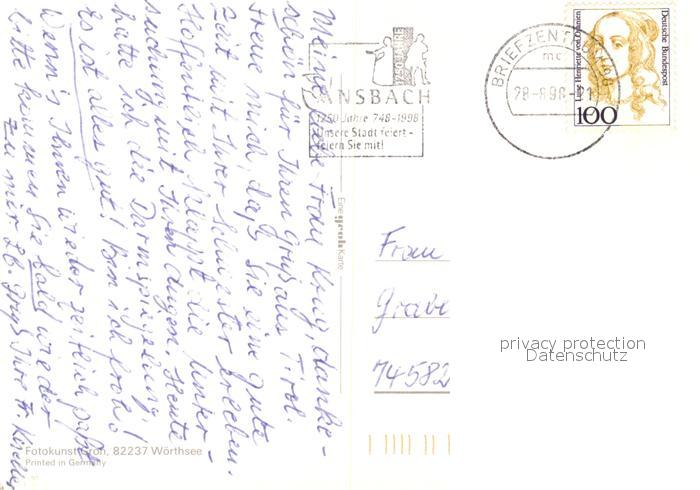 Meine liebe Frau Krug, danke-
schön für Ihren Gruß aus Tirol.
Freue mich, daß Sie eine gute
Zeit mit Ihrer Schwester erleben.
Hoffentlich klappt die Unter-
suchung mit Ihren Augen. Heute
hatte ich die Darmspiegelung,
es ist alles gut! Bin ich froh!
Wenn's Ihnen wieder zeitlich paßt
bitte kommen Sie bald wieder
zu mir. Lb. Gruß Ihre Fr.
Fotokunst Groh, 82237 Wörthsee
Printed in Germany
Eine groh Karte
ANSBACH
1250 Jahre 748-1998
Unsere Stadt feiert -
feiern Sie mit!
BRIEFZENTRUM
mc
28-8.98
Luise Henriette von Oranien
Deutsche Bundespost
100
Frau
Grabe
74582
privacy protection
Datenschutz